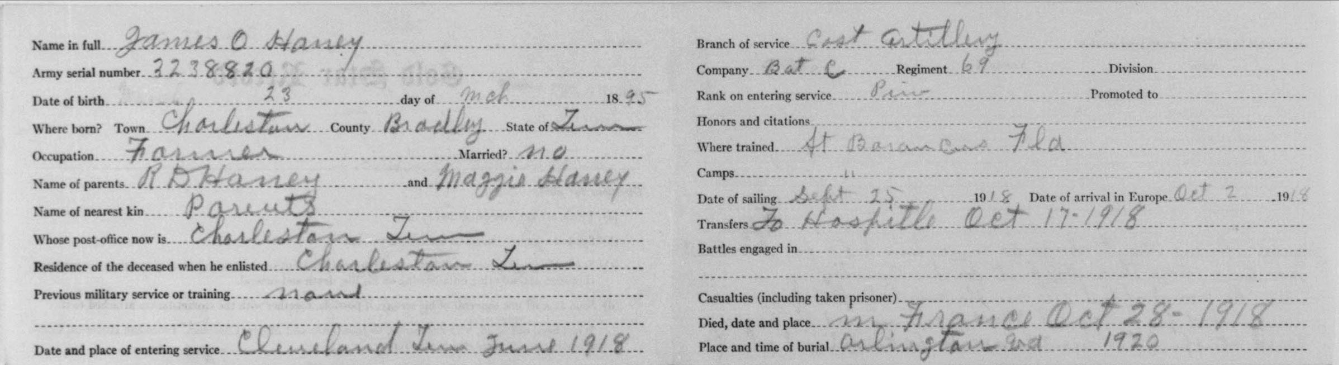 Name in full James O Haney
Army serial number 3238820
Date of birth 23 day of Mch 1895
Where born? Town Charleston County Bradley State of Tenn
Occupation Farmer Married? no
Name of parents R D Haney and Maggie Haney
Name of nearest kin Parents
Whose post-office now is Charleston Tenn
Residence of the deceased when he enlisted Charleston Tenn
Previous military service or training none
Date and place of entering service Cleveland Tenn June 1918
Branch of service Cost Artillery
Company Bat C Regiment 69 Division
Rank on entering service Priv Promoted to
Honors and citations
Where trained Ft Fla
Camps "
Date of sailing Sept 25 1918 Date of arrival in Europe Oct 2 1918
Transfers To Hospitle Oct 17-1918
Battles engaged in
Casualties (including taken prisoner)
Died, date and place in France Oct 28-1918
Place and time of burial Arlington 1920